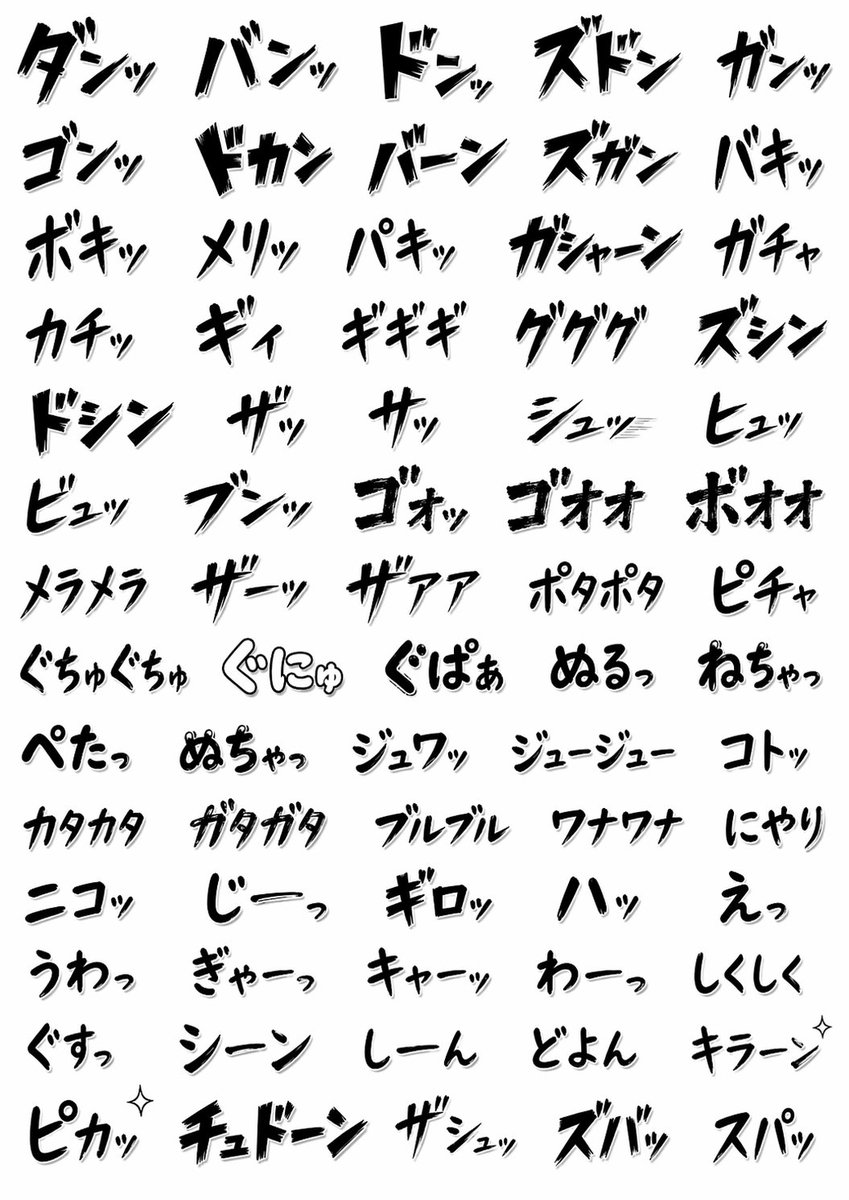 ダンッ バンッ ドンッ ズドン ガンッ
ゴンッ ドカン バーン ズガン バキッ
ボキッ メリッ パキッ ガシャーン ガチャ
カチッ ギィ ギギギ グググ ズシン
ドシン ザッ サッ シュッ ヒュッ
ビュッ ブンッ ゴォッ ゴオオ ボオオ
メラメラ ザーッ ザアア ポタポタ ピチャ
ぐちゅぐちゅ ぐにゅ ぐぱぁ ぬるっ ねちゃっ
ぺたっ ぬちゃっ ジュワッ ジュージュー コトッ
カタカタ ガタガタ ブルブル ワナワナ にやり
ニコッ じーっ ギロッ ハッ えっ
うわっ ぎゃーっ キャーッ わーっ しくしく
ぐすっ シーン しーん どよん キラーン
ピカッ チュドーン ザシュッ ズバッ スパッ